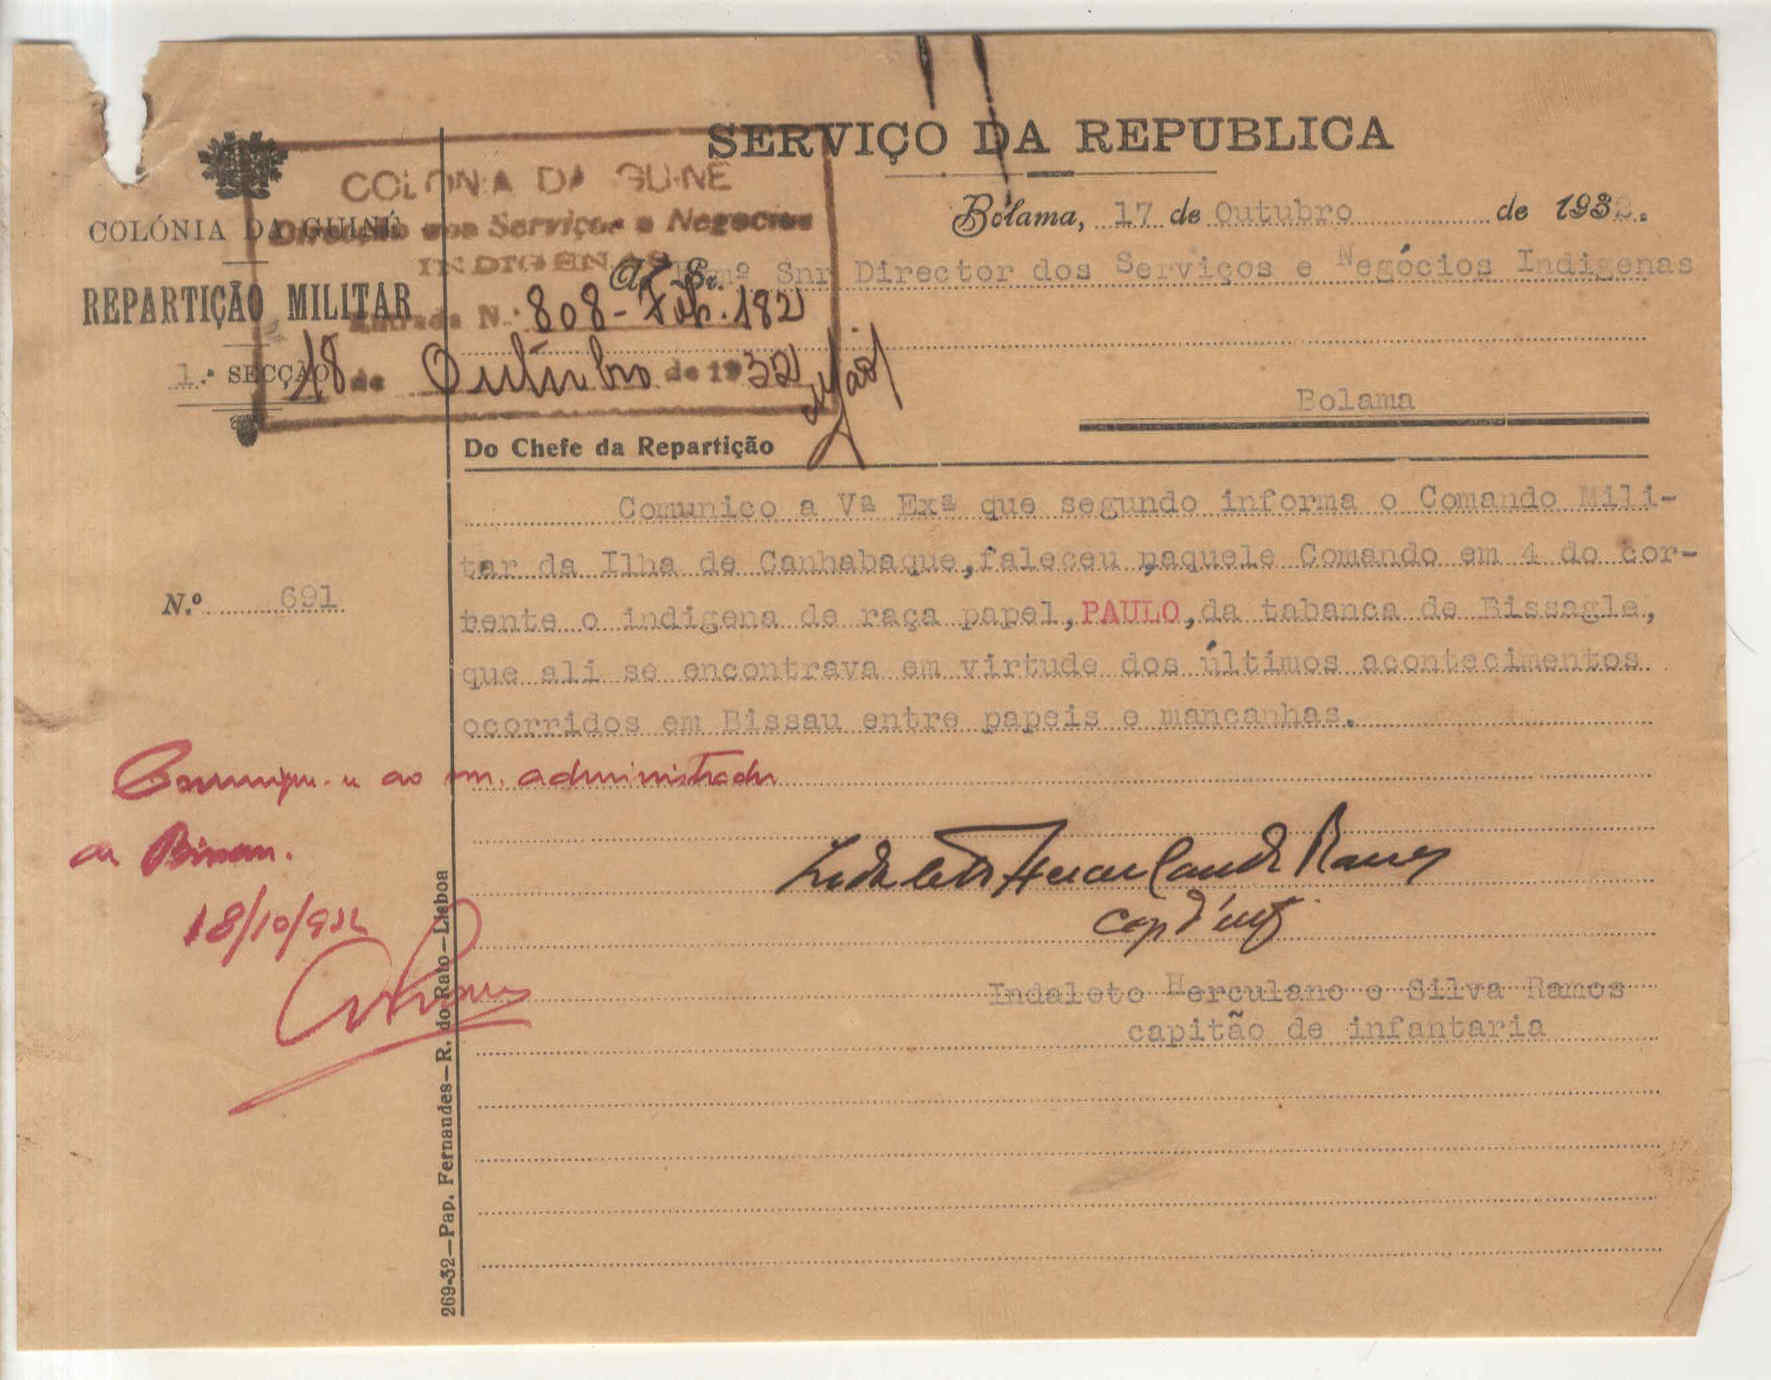 SERVIÇO DA REPUBLICA
COLONIA DA GUINÉ
Direcção dos Serviços e Negocios
INDIGENAS
Entrada N.º 808 - 182
18 de Outubro de 1932
COLÓNIA DA GUINÉ
REPARTIÇÃO MILITAR
1.ª SECÇÃO
Bolama, 17 de Outubro de 1932.
Ao Sr. Exmº Snr Director dos Serviços e Negócios Indigenas
Bolama
Do Chefe da Repartição
N.º 691
Comunico a Vª Exª que segundo informa o Comando Mili-
tar da Ilha de Canhabaque, faleceu naquele Comando em 4 do cor-
rente o indigena de raça papel, PAULO, da tabanca de Bissagle,
que ali se encontrava em virtude dos últimos acontecimentos
ocorridos em Bissau entre papeis e mancanhas.
Comunique-se ao administrador
de Bissau.
18/10/932
Indaleto Herculano e Silva Ramos
cap d'inf
Indaleto Herculano e Silva Ramos
capitão de infantaria
269-32—Pap. Fernandes—R. do Rato—Lisboa